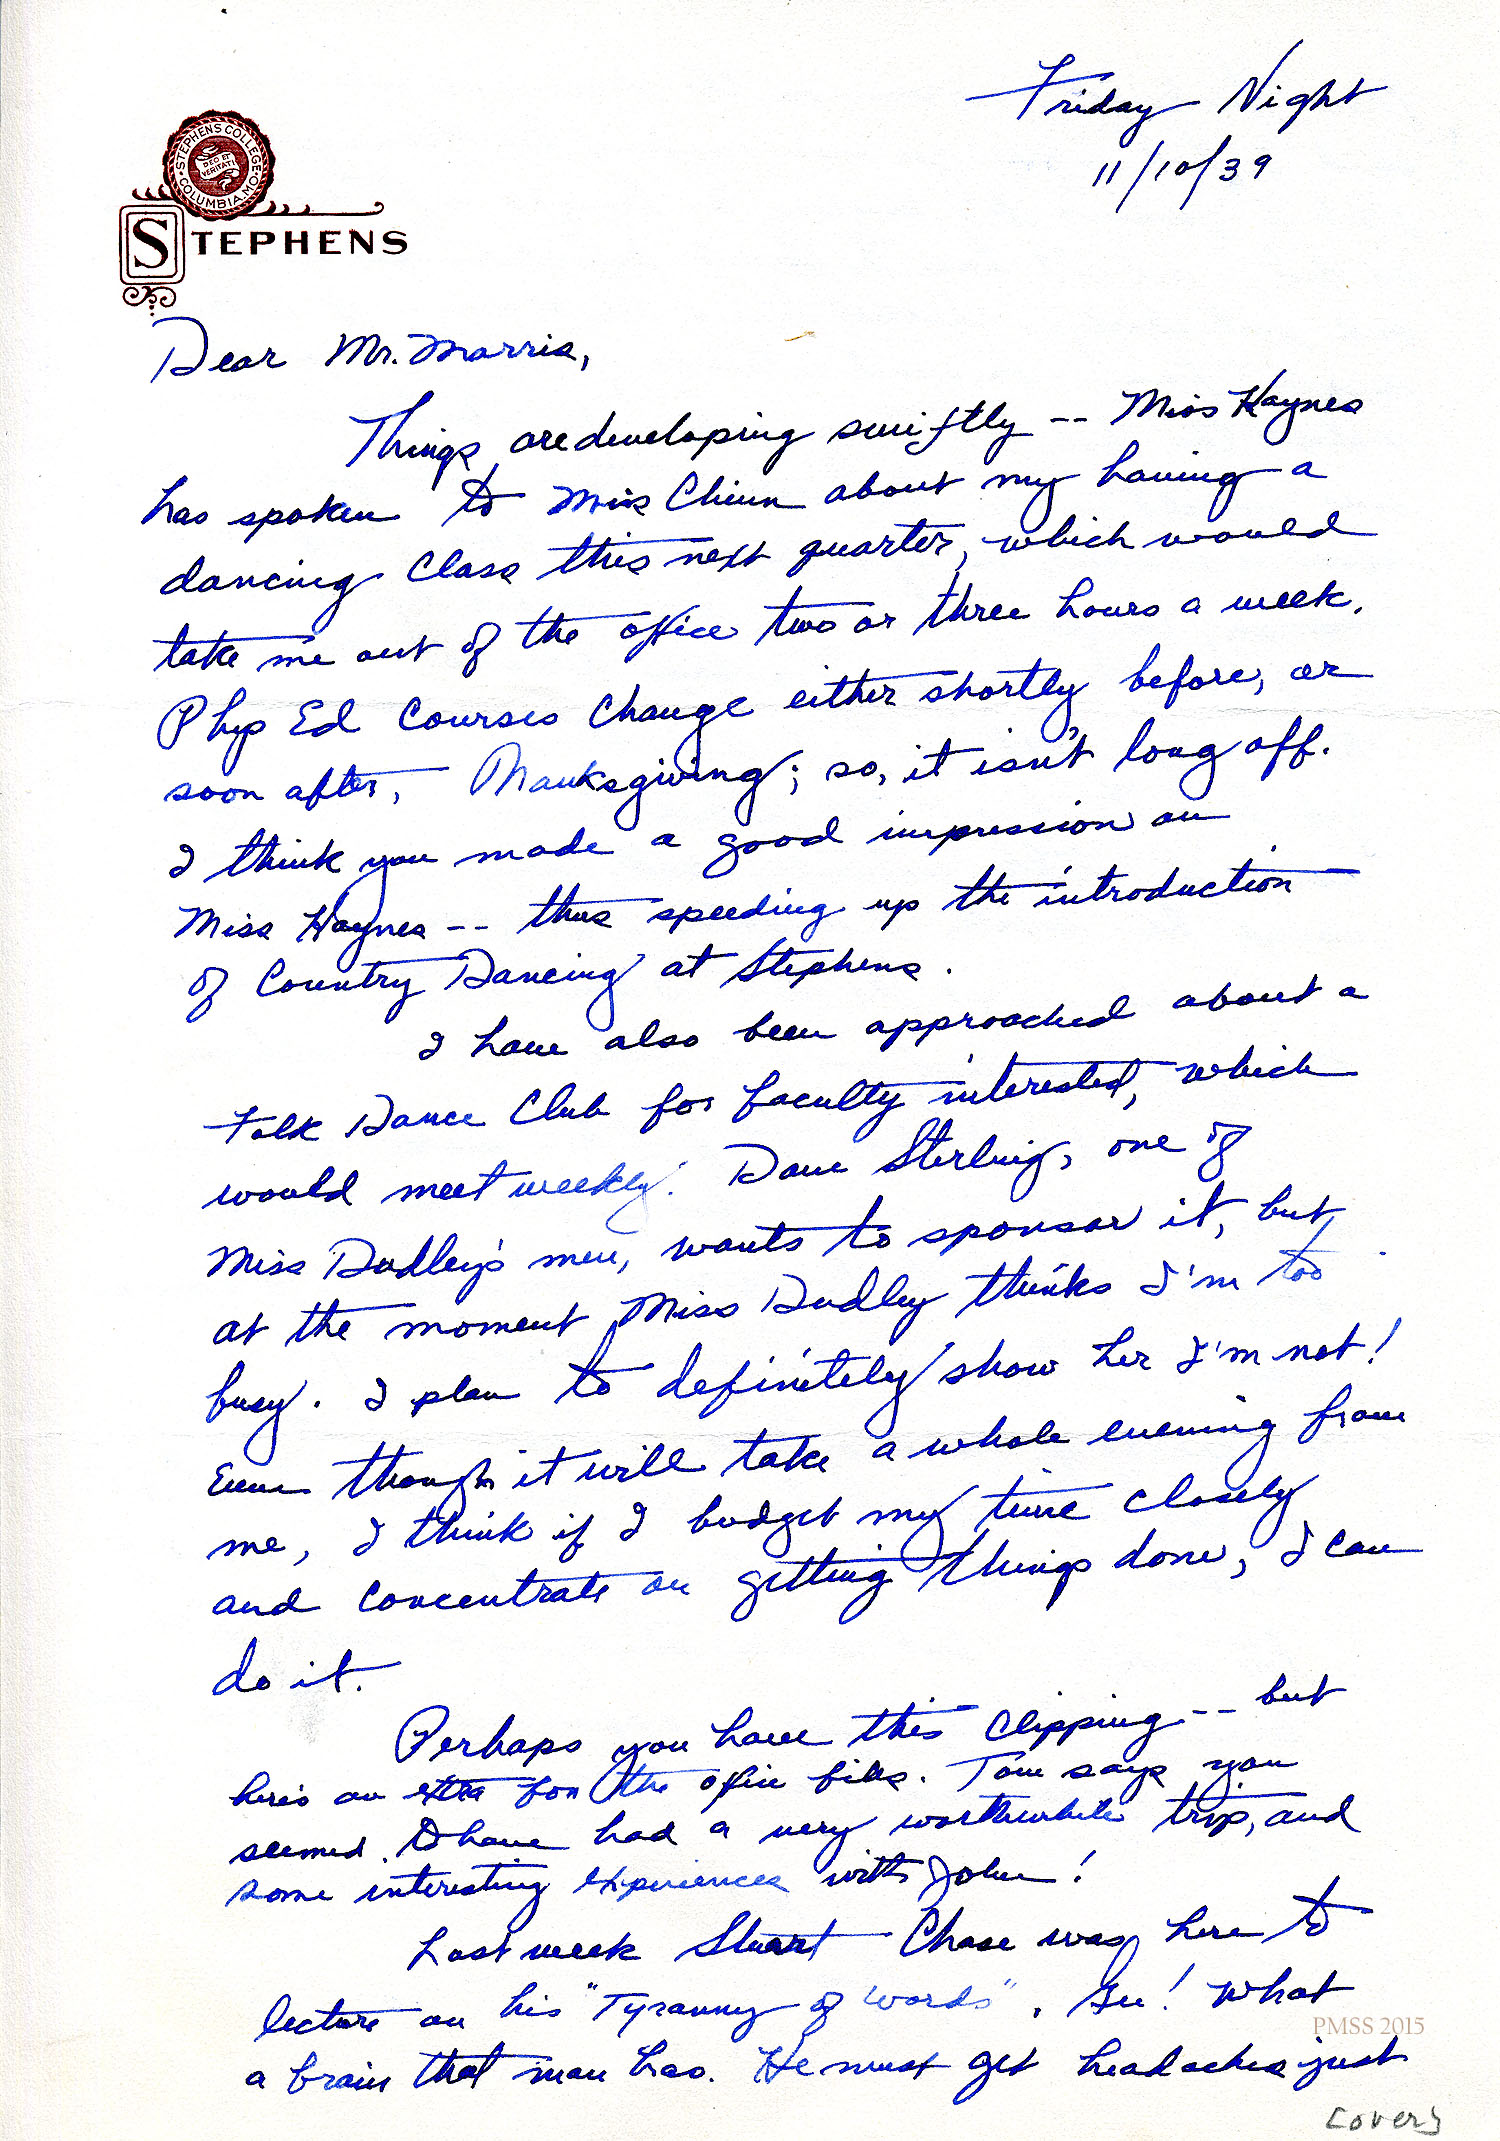 Friday Night
11/10/39
STEPHENS COLLEGE
DEO ET
VERITATI
COLUMBIA, MO.
STEPHENS
Dear Mr. Morris,
Things are developing swiftly -- Miss Haynes
has spoken to Miss Chinn about my having a
dancing class this next quarter, which would
take me out of the office two or three hours a week.
Phys Ed courses change either shortly before, or
soon after, Thanksgiving; so, it isn't long off.
I think you made a good impression on
Miss Haynes -- thus speeding up the introduction
of Country Dancing at Stephens.
I have also been approached about a
Folk Dance Club for faculty interested, which
would meet weekly. Dave Sterling, one of
Miss Dudley's men, wants to sponsor it, but,
at the moment Miss Dudley thinks I'm too
busy. I plan to definitely show her I'm not!
Even though it will take a whole evening from
me, I think if I budget my time closely
and concentrate on getting things done, I can
do it.
Perhaps you have this clipping -- but
here's an extra for the office files. Tom says you
seemed to have had a very worthwhile trip, and
some interesting experiences with John!
Last week Stuart Chase was here to
lecture on his "Tyranny of Words". Gee! What
PMSS 2015
a brain that man has. He must get headaches just
(over)